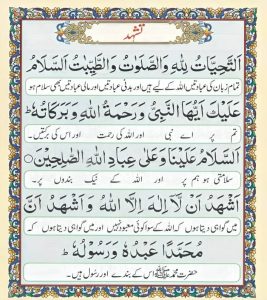 تشهد
اَلتَّحِيَّاتُ لِلّٰهِ وَالصَّلَوٰتُ وَالطَّيِّبٰتُ اَلسَّلَامُ
تمام زبان کی عبادتیں اللہ کے لیے ہیں اور بدنی عبادتیں اور مالی عبادتیں بھی سلام ہو
عَلَيْكَ اَيُّهَا النَّبِيُّ وَرَحْمَةُ اللّٰهِ وَبَرَكَاتُهٗ ط
تم پر اے نبی اور اللہ کی رحمت اور اس کی برکتیں۔
اَلسَّلَامُ عَلَيْنَا وَعَلٰى عِبَادِ اللّٰهِ الصّٰلِحِيْنَ ○
سلامتی ہو ہم پر اور اللہ کے نیک بندوں پر۔
اَشْهَدُ اَنْ لَّا اِلٰهَ اِلَّا اللّٰهُ وَاَشْهَدُ اَنَّ
میں گواہی دیتا ہوں کہ اللہ کے سوا کوئی معبود نہیں اور میں گواہی دیتا ہوں کہ
مُحَمَّدًا عَبْدُهٗ وَرَسُوْلُهٗ ط
حضرت محمد ﷺ اس کے بندے اور رسول ہیں۔